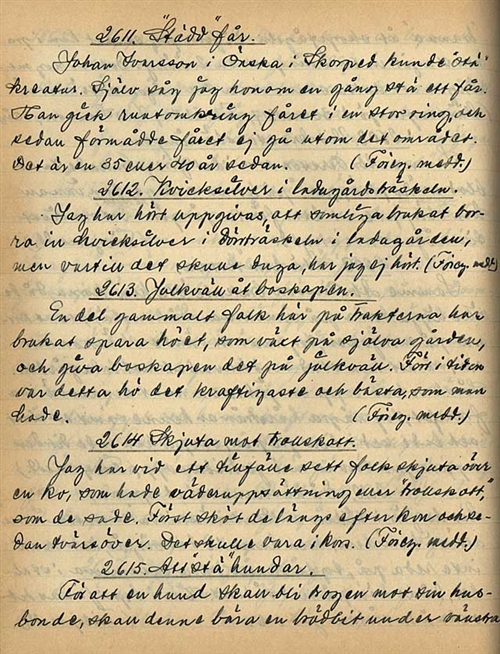 2611. "Städd" får.
Johan Ivarsson i Önska i Skorped kunde "stä"
kreatur. Själv såg jag honom en gång stä ett får.
Han gick runtomkring fåret i en stor ring, och
sedan förmådde fåret ej gå utom det området.
Det är en 35 eller 40 år sedan. (Föreg. medd.)
2612. Kvicksilver i ladugårdströskeln.
Jag har hört uppgivas, att somliga brukat bor-
ra in kvicksilver i dörrtröskeln i ladugården,
men vartill det skulle duga, har jag ej hört. (Föreg. medd.)
2613. Julkväll åt boskapen.
En del gammalt folk här på trakterna har
brukat spara höet, som växt på själva gården,
och giva boskapen det på julkväll. Förr i tiden
var detta hö det kraftigaste och bästa, som man
hade. (Föreg. medd.)
2614 Skjuta mot trollskott.
Jag har vid ett tillfälle sett folk skjuta över
en ko, som hade väderuppsättning eller "trollskott,"
som de sade. Först sköt de längs efter kon och se-
dan tvärsöver. Det skulle vara i kors. (Föreg. medd.)
2615. Att "stä" hundar.
För att en hund skall bli trogen mot sin hus-
bonde, skall denne bära en brödbit under vänstra